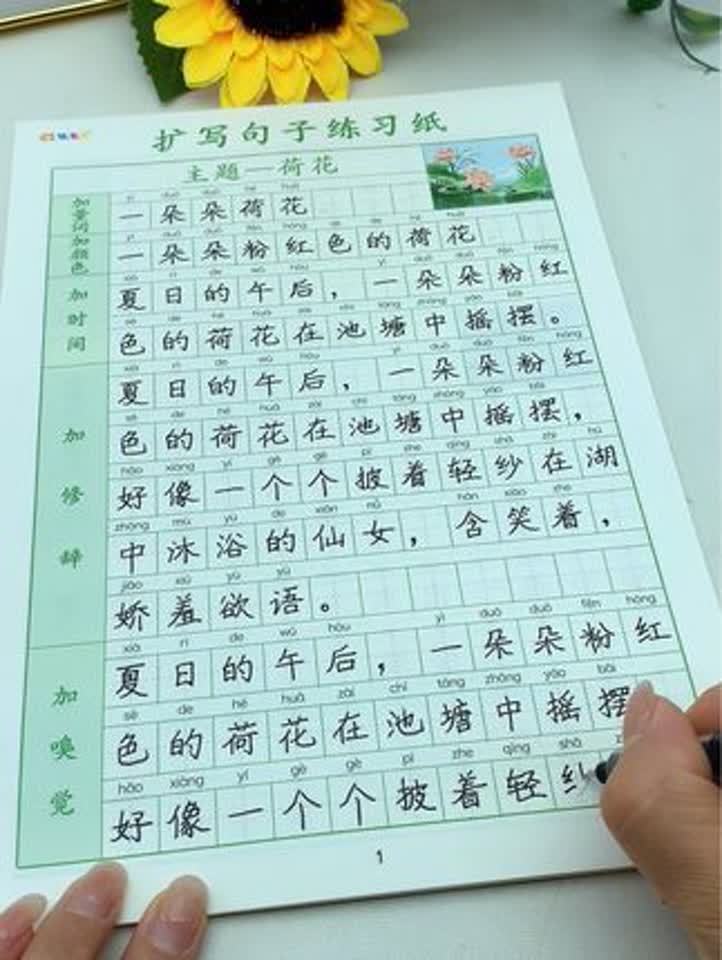 扩写句子练习纸
主题—荷花
加量词
yì duǒ duǒ hé huā
一朵朵荷花
加颜色
yì duǒ duǒ fěn hóng sè de hé huā
一朵朵粉红色的荷花
加时间
xià rì de wǔ hòu yì duǒ duǒ fěn hóng
夏日的午后，一朵朵粉红
sè de hé huā zài chí táng zhōng yáo bǎi
色的荷花在池塘中摇摆。
加修辞
xià rì de wǔ hòu yì duǒ duǒ fěn hóng
夏日的午后，一朵朵粉红
sè de hé huā zài chí táng zhōng yáo bǎi
色的荷花在池塘中摇摆，
hǎo xiàng yí gè gè pī zhe qīng shā zài hú
好像一个个披着轻纱在湖
zhōng mù yù de xiān nǚ hán xiào zhe
中沐浴的仙女，含笑着，
jiāo xiū yù yǔ
娇羞欲语。
加嗅觉
xià rì de wǔ hòu yì duǒ duǒ fěn hóng
夏日的午后，一朵朵粉红
sè de hé huā zài chí táng zhōng yáo bǎi
色的荷花在池塘中摇摆
hǎo xiàng yí gè gè pī zhe qīng shā
好像一个个披着轻纱
1